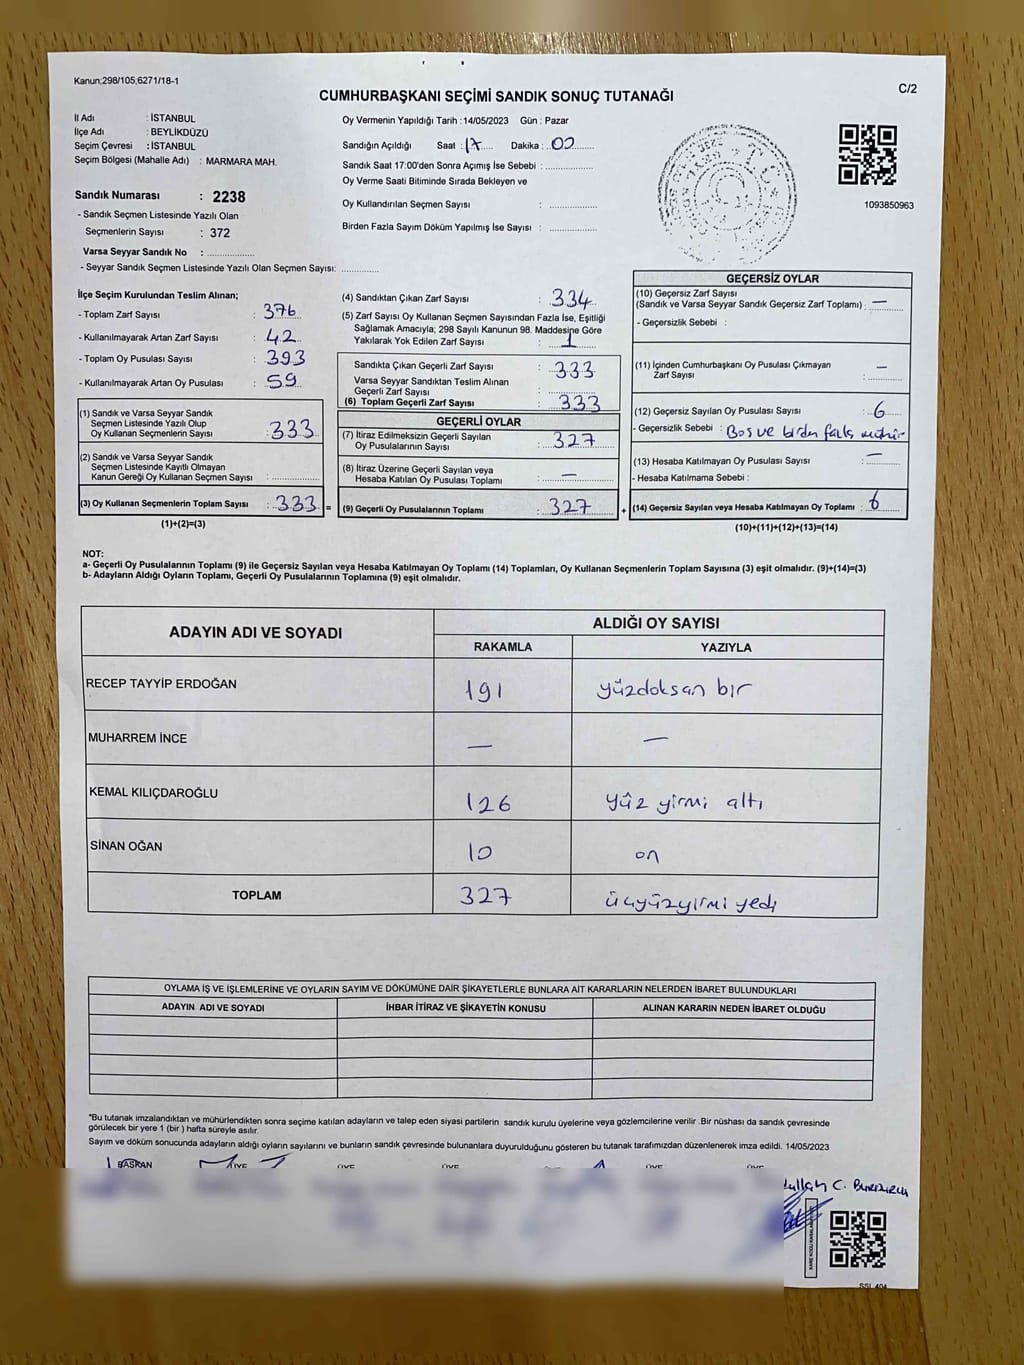 Kanun;298/105;6271/18-1
C/2
CUMHURBAŞKANI SEÇİMİ SANDIK SONUÇ TUTANAĞI
İl Adı : İSTANBUL
İlçe Adı : BEYLİKDÜZÜ
Seçim Çevresi : İSTANBUL
Seçim Bölgesi (Mahalle Adı) : MARMARA MAH.
Sandık Numarası : 2238
- Sandık Seçmen Listesinde Yazılı Olan
Seçmenlerin Sayısı : 372
Varsa Seyyar Sandık No :
- Seyyar Sandık Seçmen Listesinde Yazılı Olan Seçmen Sayısı:
Oy Vermenin Yapıldığı Tarih :14/05/2023 Gün : Pazar
Sandığın Açıldığı Saat : 17 Dakika : 00
Sandık Saat 17:00'den Sonra Açımış İse Sebebi :
Oy Verme Saati Bitiminde Sırada Bekleyen ve
Oy Kullandırılan Seçmen Sayısı :
Birden Fazla Sayım Döküm Yapılmış İse Sayısı :
1093850963
İlçe Seçim Kurulundan Teslim Alınan;
- Toplam Zarf Sayısı : 376
- Kullanılmayarak Artan Zarf Sayısı : 42
- Toplam Oy Pusulası Sayısı : 393
- Kullanılmayarak Artan Oy Pusulası : 59
(1) Sandık ve Varsa Seyyar Sandık
Seçmen Listesinde Yazılı Olup
Oy Kullanan Seçmenlerin Sayısı : 333
(2) Sandık ve Varsa Seyyar Sandık
Seçmen Listesinde Kayıtlı Olmayan
Kanun Gereği Oy Kullanan Seçmen Sayısı :
(3) Oy Kullanan Seçmenlerin Toplam Sayısı : 333 =
(1)+(2)=(3)
(4) Sandıktan Çıkan Zarf Sayısı : 334
(5) Zarf Sayısı Oy Kullanan Seçmen Sayısından Fazla İse, Eşitliği
Sağlamak Amacıyla; 298 Sayılı Kanunun 98. Maddesine Göre
Yakılarak Yok Edilen Zarf Sayısı : 1
Sandıkta Çıkan Geçerli Zarf Sayısı : 333
Varsa Seyyar Sandıktan Teslim Alınan
Geçerli Zarf Sayısı :
(6) Toplam Geçerli Zarf Sayısı : 333
GEÇERLİ OYLAR
(7) İtiraz Edilmeksizin Geçerli Sayılan
Oy Pusulasının Sayısı : 327
(8) İtiraz Üzerine Geçerli Sayılan veya
Hesaba Katılan Oy Pusulası Toplamı : —
(9) Geçerli Oy Pusulalarının Toplamı : 327 +
GEÇERSİZ OYLAR
(10) Geçersiz Zarf Sayısı
(Sandık ve Varsa Seyyar Sandık Geçersiz Zarf Toplamı) : —
- Geçersizlik Sebebi :
(11) İçinden Cumhurbaşkanı Oy Pusulası Çıkmayan
Zarf Sayısı : —
(12) Geçersiz Sayılan Oy Pusulası Sayısı : 6
- Geçersizlik Sebebi : Boş ve birden fazla mühür
(13) Hesaba Katılmayan Oy Pusulası Sayısı : —
- Hesaba Katılmama Sebebi :
(14) Geçersiz Sayılan veya Hesaba Katılmayan Oy Toplamı : 6
(10)+(11)+(12)+(13)=(14)
NOT:
a- Geçerli Oy Pusulalarının Toplamı (9) ile Geçersiz Sayılan veya Hesaba Katılmayan Oy Toplamı (14) Toplamları, Oy Kullanan Seçmenlerin Toplam Sayısına (3) eşit olmalıdır. (9)+(14)=(3)
b- Adayların Aldığı Oyların Toplamı, Geçerli Oy Pusulalarının Toplamına (9) eşit olmalıdır.
ADAYIN ADI VE SOYADI ALDIĞI OY SAYISI
RAKAMLA YAZIYLA
RECEP TAYYİP ERDOĞAN 191 yüzdoksan bir
MUHARREM İNCE — —
KEMAL KILIÇDAROĞLU 126 yüz yirmi altı
SİNAN OĞAN 10 on
TOPLAM 327 üçyüzyirmi yedi
OYLAMA İŞ VE İŞLEMLERİNE VE OYLARIN SAYIM VE DÖKÜMÜNE DAİR ŞİKAYETLERLE BUNLARA AİT KARARLARIN NELERDEN İBARET BULUNDUKLARI
ADAYIN ADI VE SOYADI İHBAR İTİRAZ VE ŞİKAYETİN KONUSU ALINAN KARARIN NEDEN İBARET OLDUĞU
*Bu tutanak imzalandıktan ve mühürlendikten sonra seçime katılan adayların ve talep eden siyasi partilerin sandık kurulu üyelerine veya gözlemcilerine verilir .Bir nüshası da sandık çevresinde
görülecek bir yere 1 (bir ) hafta süreyle asılır.
Sayım ve döküm sonucunda adayların aldığı oyların sayılarını ve bunların sandık çevresinde bulunanlara duyurulduğunu gösteren bu tutanak tarafımızdan düzenlenerek imza edildi. 14/05/2023
BAŞKAN ÜYE ÜYE ÜYE ÜYE ÜYE